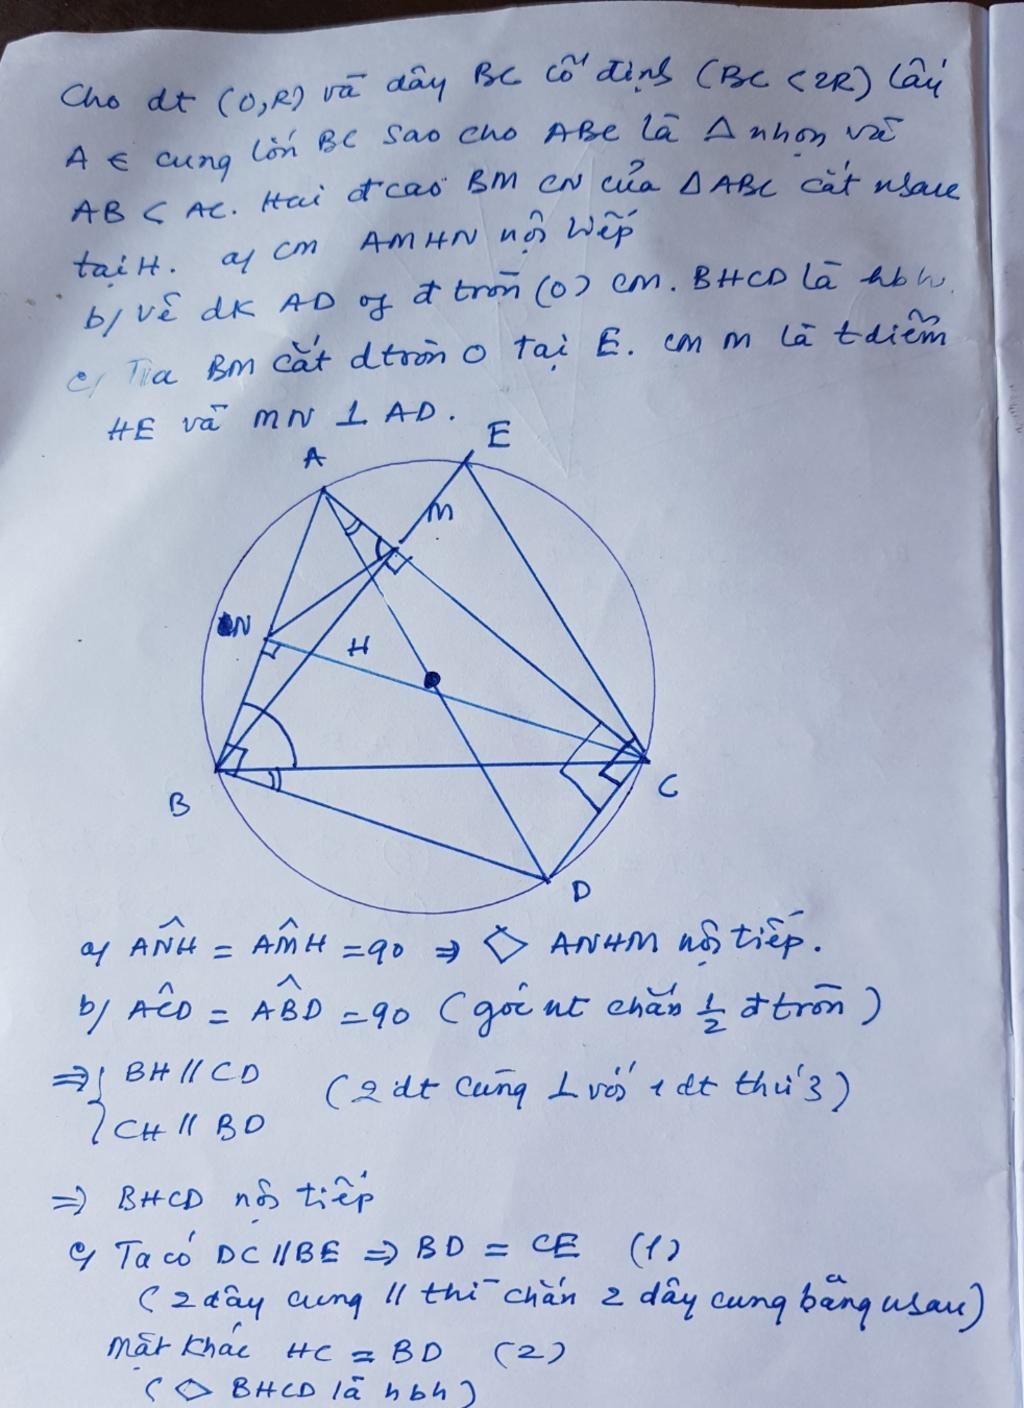 Cho dt (O,R) và dây BC cố định (BC < 2R) lấy
A ∈ cung lớn BC sao cho ABC là Δ nhọn và
AB < AC. Hai đ cao BM CN của ΔABC cắt nhau
tại H. a/ CM AMHN nội tiếp
b/ vẽ dk AD of đ tròn (O) cm. BHCD là hbh
c/ Tia BM cắt dtròn O tại E. cm M là t điểm
HE và MN ⊥ AD.
A
E
M
N
H
B
C
D
a/ ANH = AMH = 90 ⇒ ◇ ANHM nội tiếp.
b/ ACD = ABD = 90 (góc nt chắn 1/2 đ tròn)
⇒ { BH // CD (2 dt cùng ⊥ với 1 dt thứ 3)
CH // BD
⇒ BHCD nội tiếp
c/ Ta có DC // BE ⇒ BD = CE (1)
(2 dây cung // thì chắn 2 dây cung bằng nhau)
Mặt khác HC = BD (2)
(◇ BHCD là hbh)